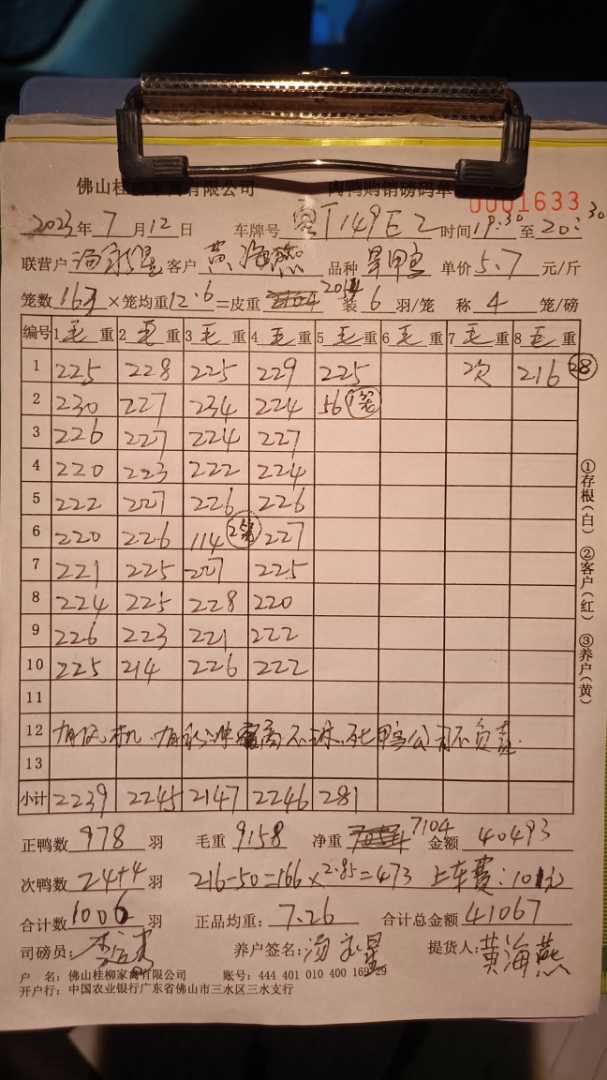 佛山桂柳家禽有限公司 肉鸭购销磅码单
0001633
2023年 7 月 12 日 车牌号 粤T149EZ 时间 19:30 至 20:30
联营户 客户 黄海燕 品种 单价 5.7 元/斤
笼数 163 ×笼均重 12.6 =皮重 2054 装 6 羽/笼 称 4 笼/磅
编号 1 毛 重 2 毛 重 3 毛 重 4 毛 重 5 毛 重 6 毛 重 7 毛 重 8 毛 重
1 225 228 225 229 225 次 216 28
2 230 227 234 224 56 1笼
3 226 227 224 227
4 220 223 222 224
5 222 227 226 226
6 220 226 114 2笼 227
7 221 225 227 225
8 224 225 228 220
9 226 223 221 222
10 225 214 226 222
11
12 鸭公司不负责
13
小计 2239 2245 2147 2246 281
正鸭数 978 羽 毛重 9158 净重 7104 金额 40493
次鸭数 24+4 羽 216-50=166×2.85=473 上车费:101元
合计数 1006 羽 正品均重: 7.26 合计总金额 41067
司磅员: 养户签名: 汤 星 提货人: 黄海燕
户 名: 佛山桂柳家禽有限公司 账号: 444 401 010 400 169 29
开户行: 中国农业银行广东省佛山市三水区三水支行
①存根(白) ②客户(红) ③养户(黄)